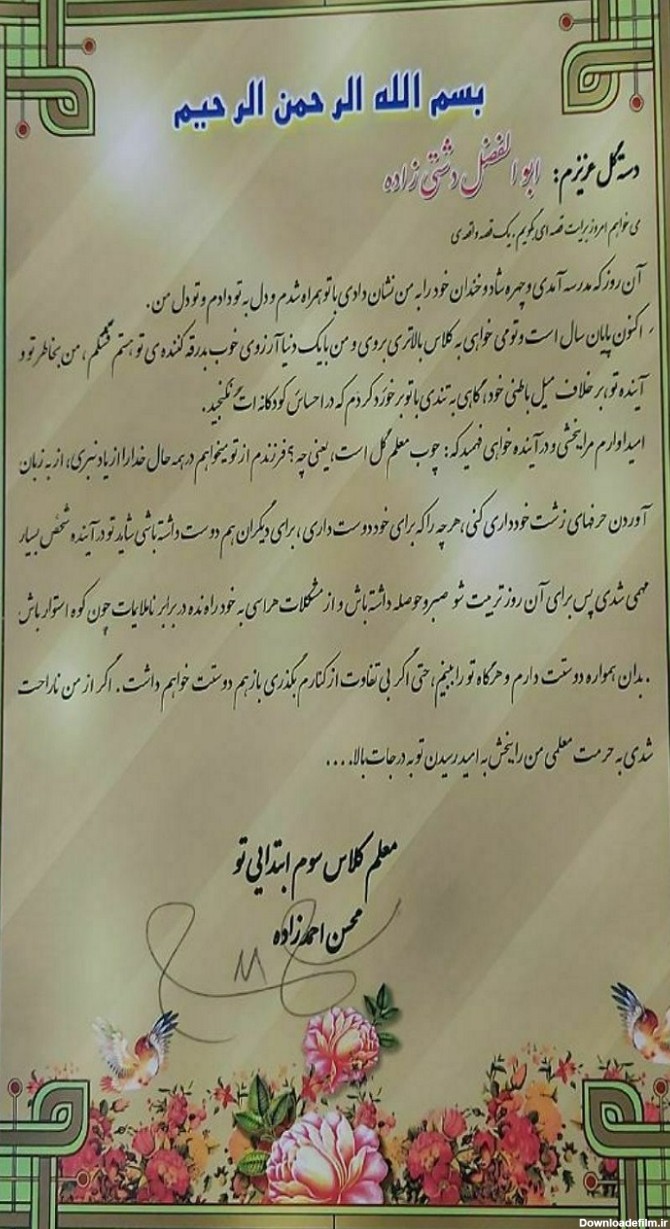 بسم الله الرحمن الرحیم
دسته گل عزیزم: ابوالفضل دشتی زاده
می خواهم امروز برایت قصه ای بگویم. یک قصه واقعی
آن روز که مدرسه آمدی و چهره شاد و خندان خود را به من نشان دادی با تو همراه شدم و دل به تو دادم و تو دل من.
اکنون پایان سال است و تو می خواهی به کلاس بالاتری بروی و من با یک دنیا آرزوی خوب بدرقه کننده ی تو هستم قشنگم، من بخاطر تو و
آینده تو، بر خلاف میل باطنی خود، گاهی به تندی با تو برخورد کردم که در احساس کودکانه ات نگنجید.
امیداوارم مرا ببخشی و در آینده خواهی فهمید که: چوب معلم گل است، یعنی چه؟ فرزندم از تو میخواهم در همه حال خدا را از یاد نبری، از به زبان
آوردن حرفهای زشت خودداری کنی، هر چه را که برای خود دوست داری، برای دیگران هم دوست داشته باشی شاید تو در آینده شخص بسیار
مهمی شدی پس برای آن روز تربیت شو صبر و حوصله داشته باش و از مشکلات هراسی به خود راه نده در برابر ناملایمات چون کوه استوار باش
. بدان همواره دوستت دارم و هرگاه تو را ببینم، حتی اگر بی تفاوت از کنارم بگذری باز هم دوستت خواهم داشت. اگر از من ناراحت
شدی به حرمت معلمی من را ببخش به امید رسیدن تو به درجات بالا....
معلم کلاس سوم ابتدایی تو
محسن احمدزاده
Downloadefilm.ir